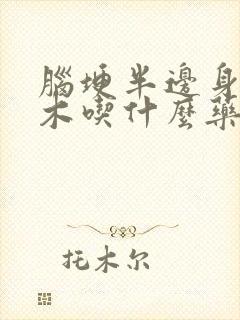 腦埂半邊身
木喫什麼藥
托木尔